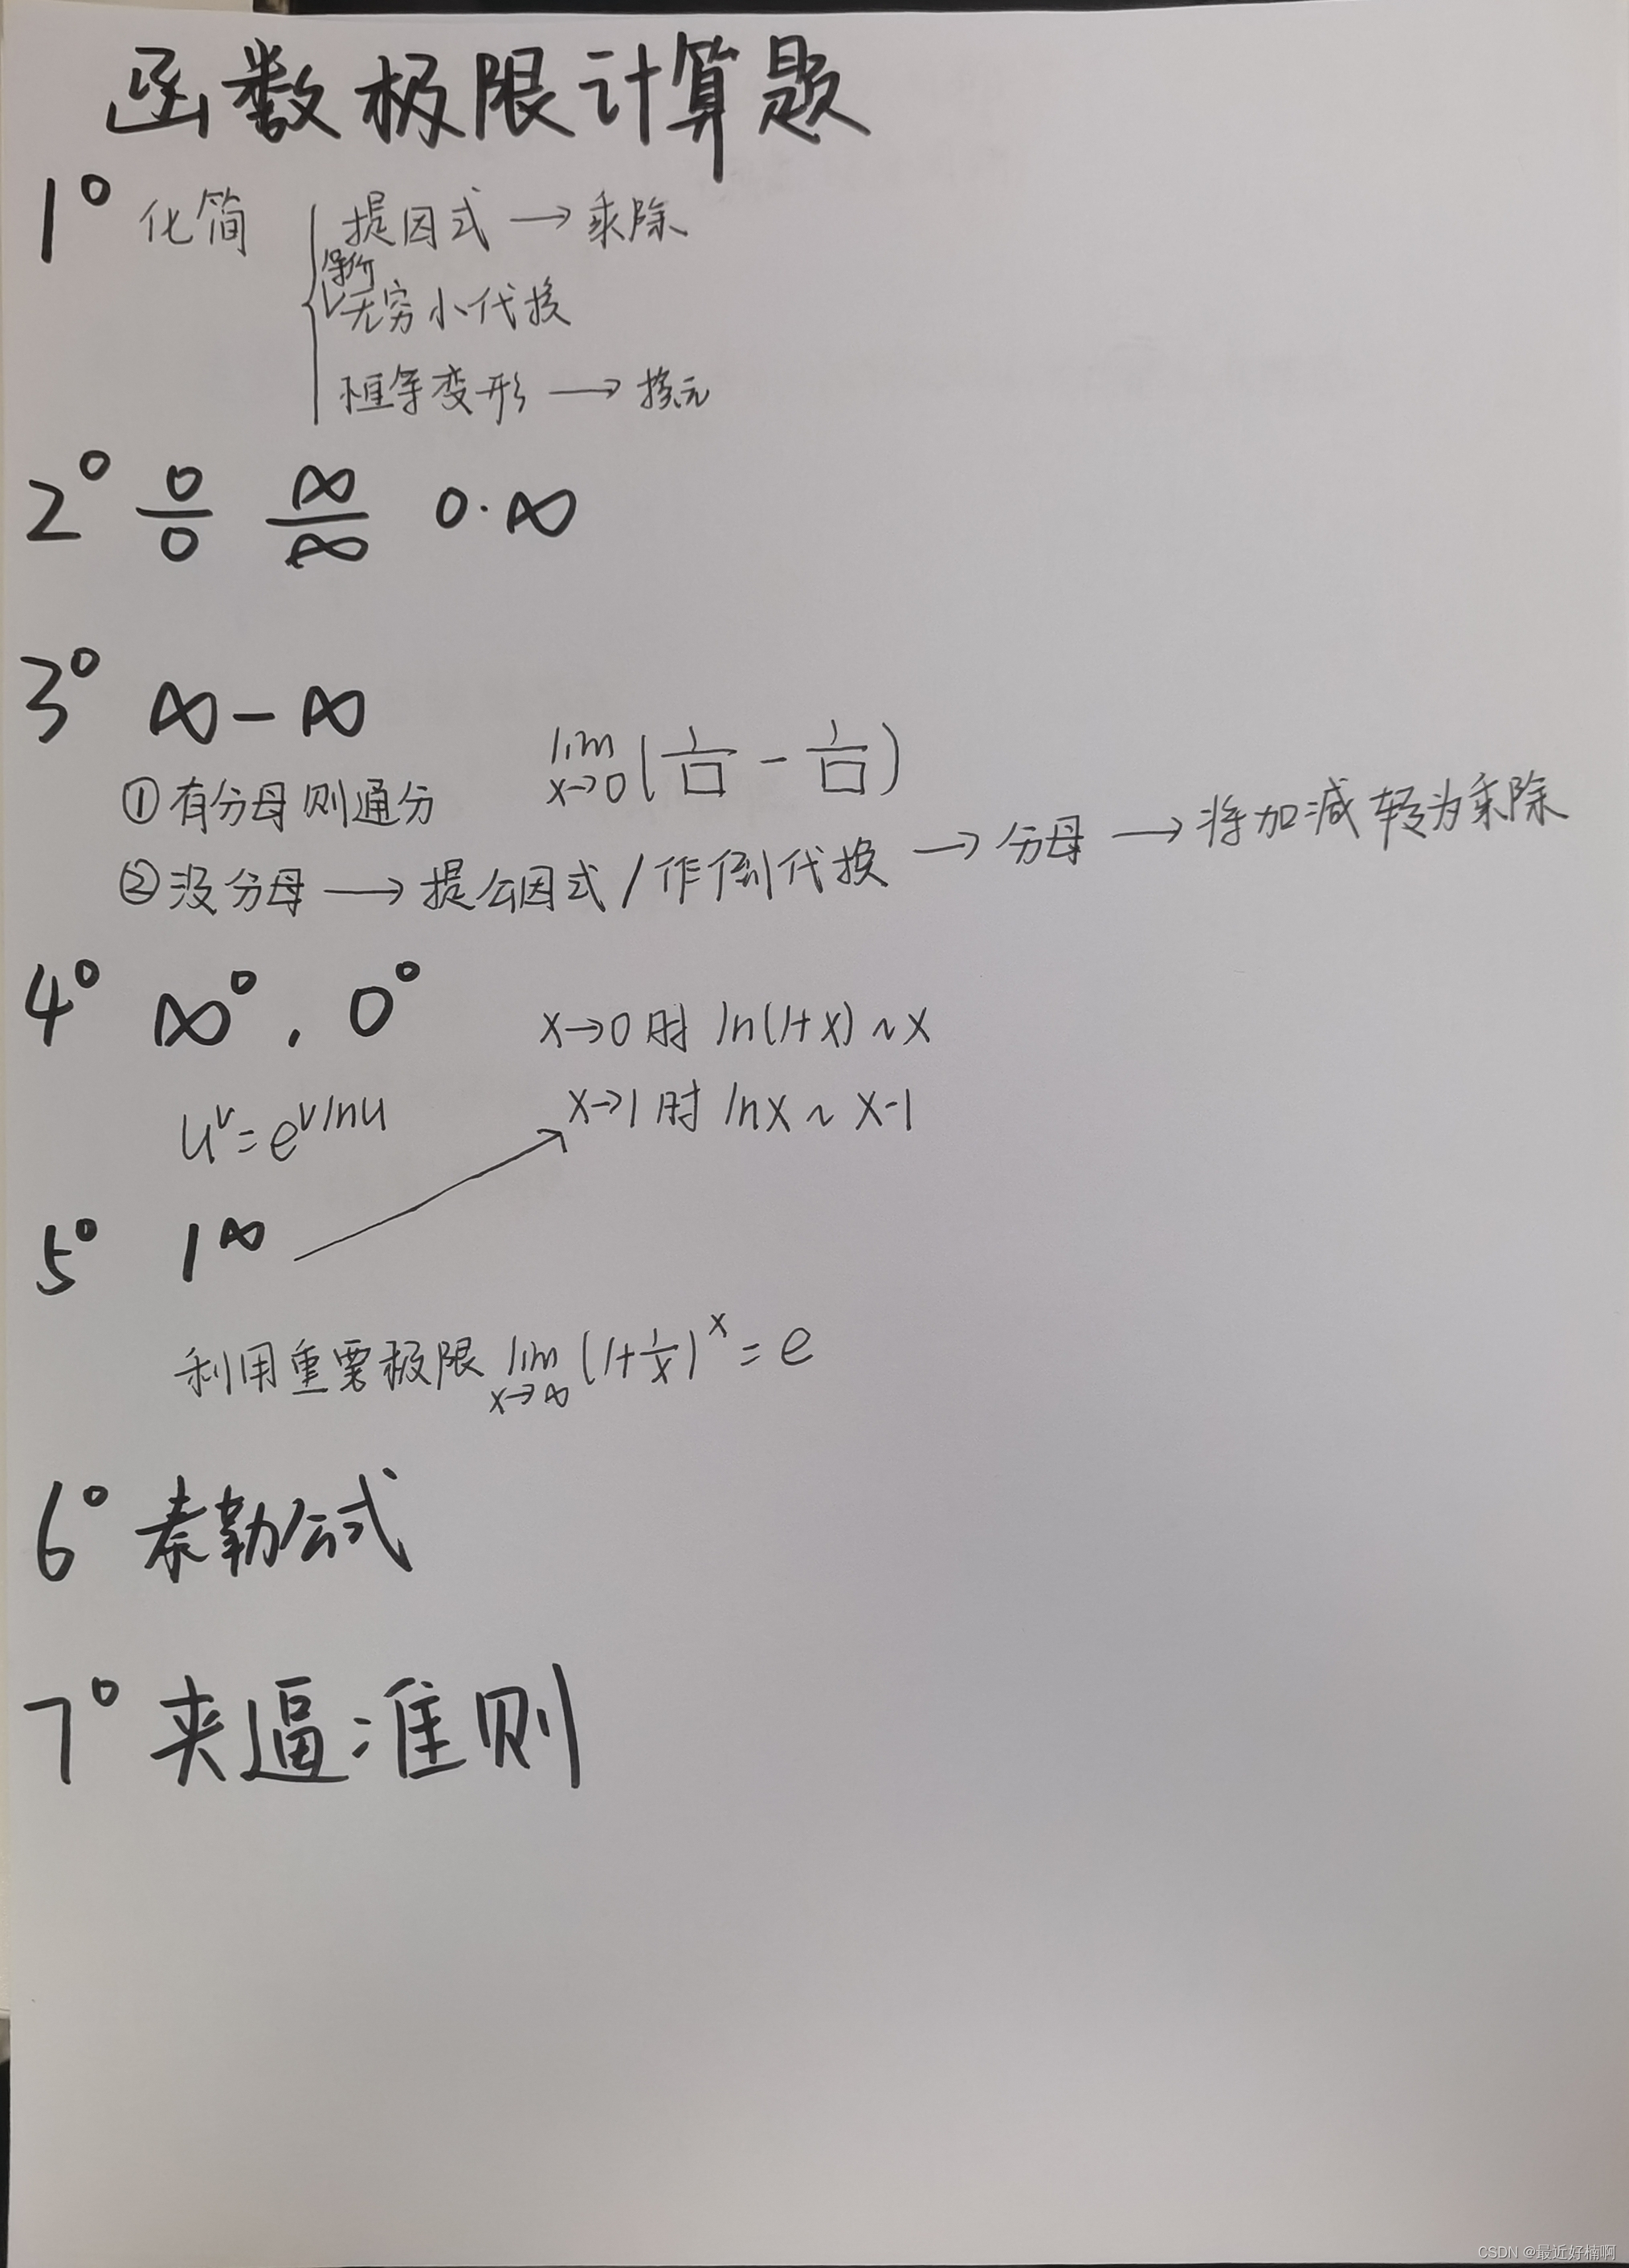 函数极限计算题
1° 化简 { 提因式 → 乘除
等价
无穷小代换
恒等变形 → 换元
2° 0/0 ∞/∞ 0·∞
3° ∞-∞
lim x→0 (1/□ - 1/□)
①有分母则通分
②没分母 → 提公因式/作倒代换 → 分母 → 将加减转为乘除
4° ∞⁰, 0⁰
x→0时 ln(1+x)~x
x→1时 lnx~x-1
u^v=e^{vlnu}
5° 1^∞
利用重要极限 lim x→∞ (1+1/x)^x = e
6° 泰勒公式
7° 夹逼准则
CSDN @最近好楠啊